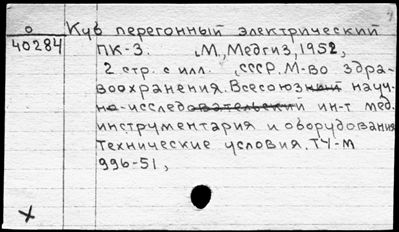 о Куб перегонный электрический
40284 ПК-3. М, Медгиз, 1952,
2 стр. с илл. , СССР. М-во здра-
воохранения. Всесоюзный науч-
но-исследовательский ин-т мед.
инструментария и оборудования
Технические условия. ТУ-М
996-51,
X